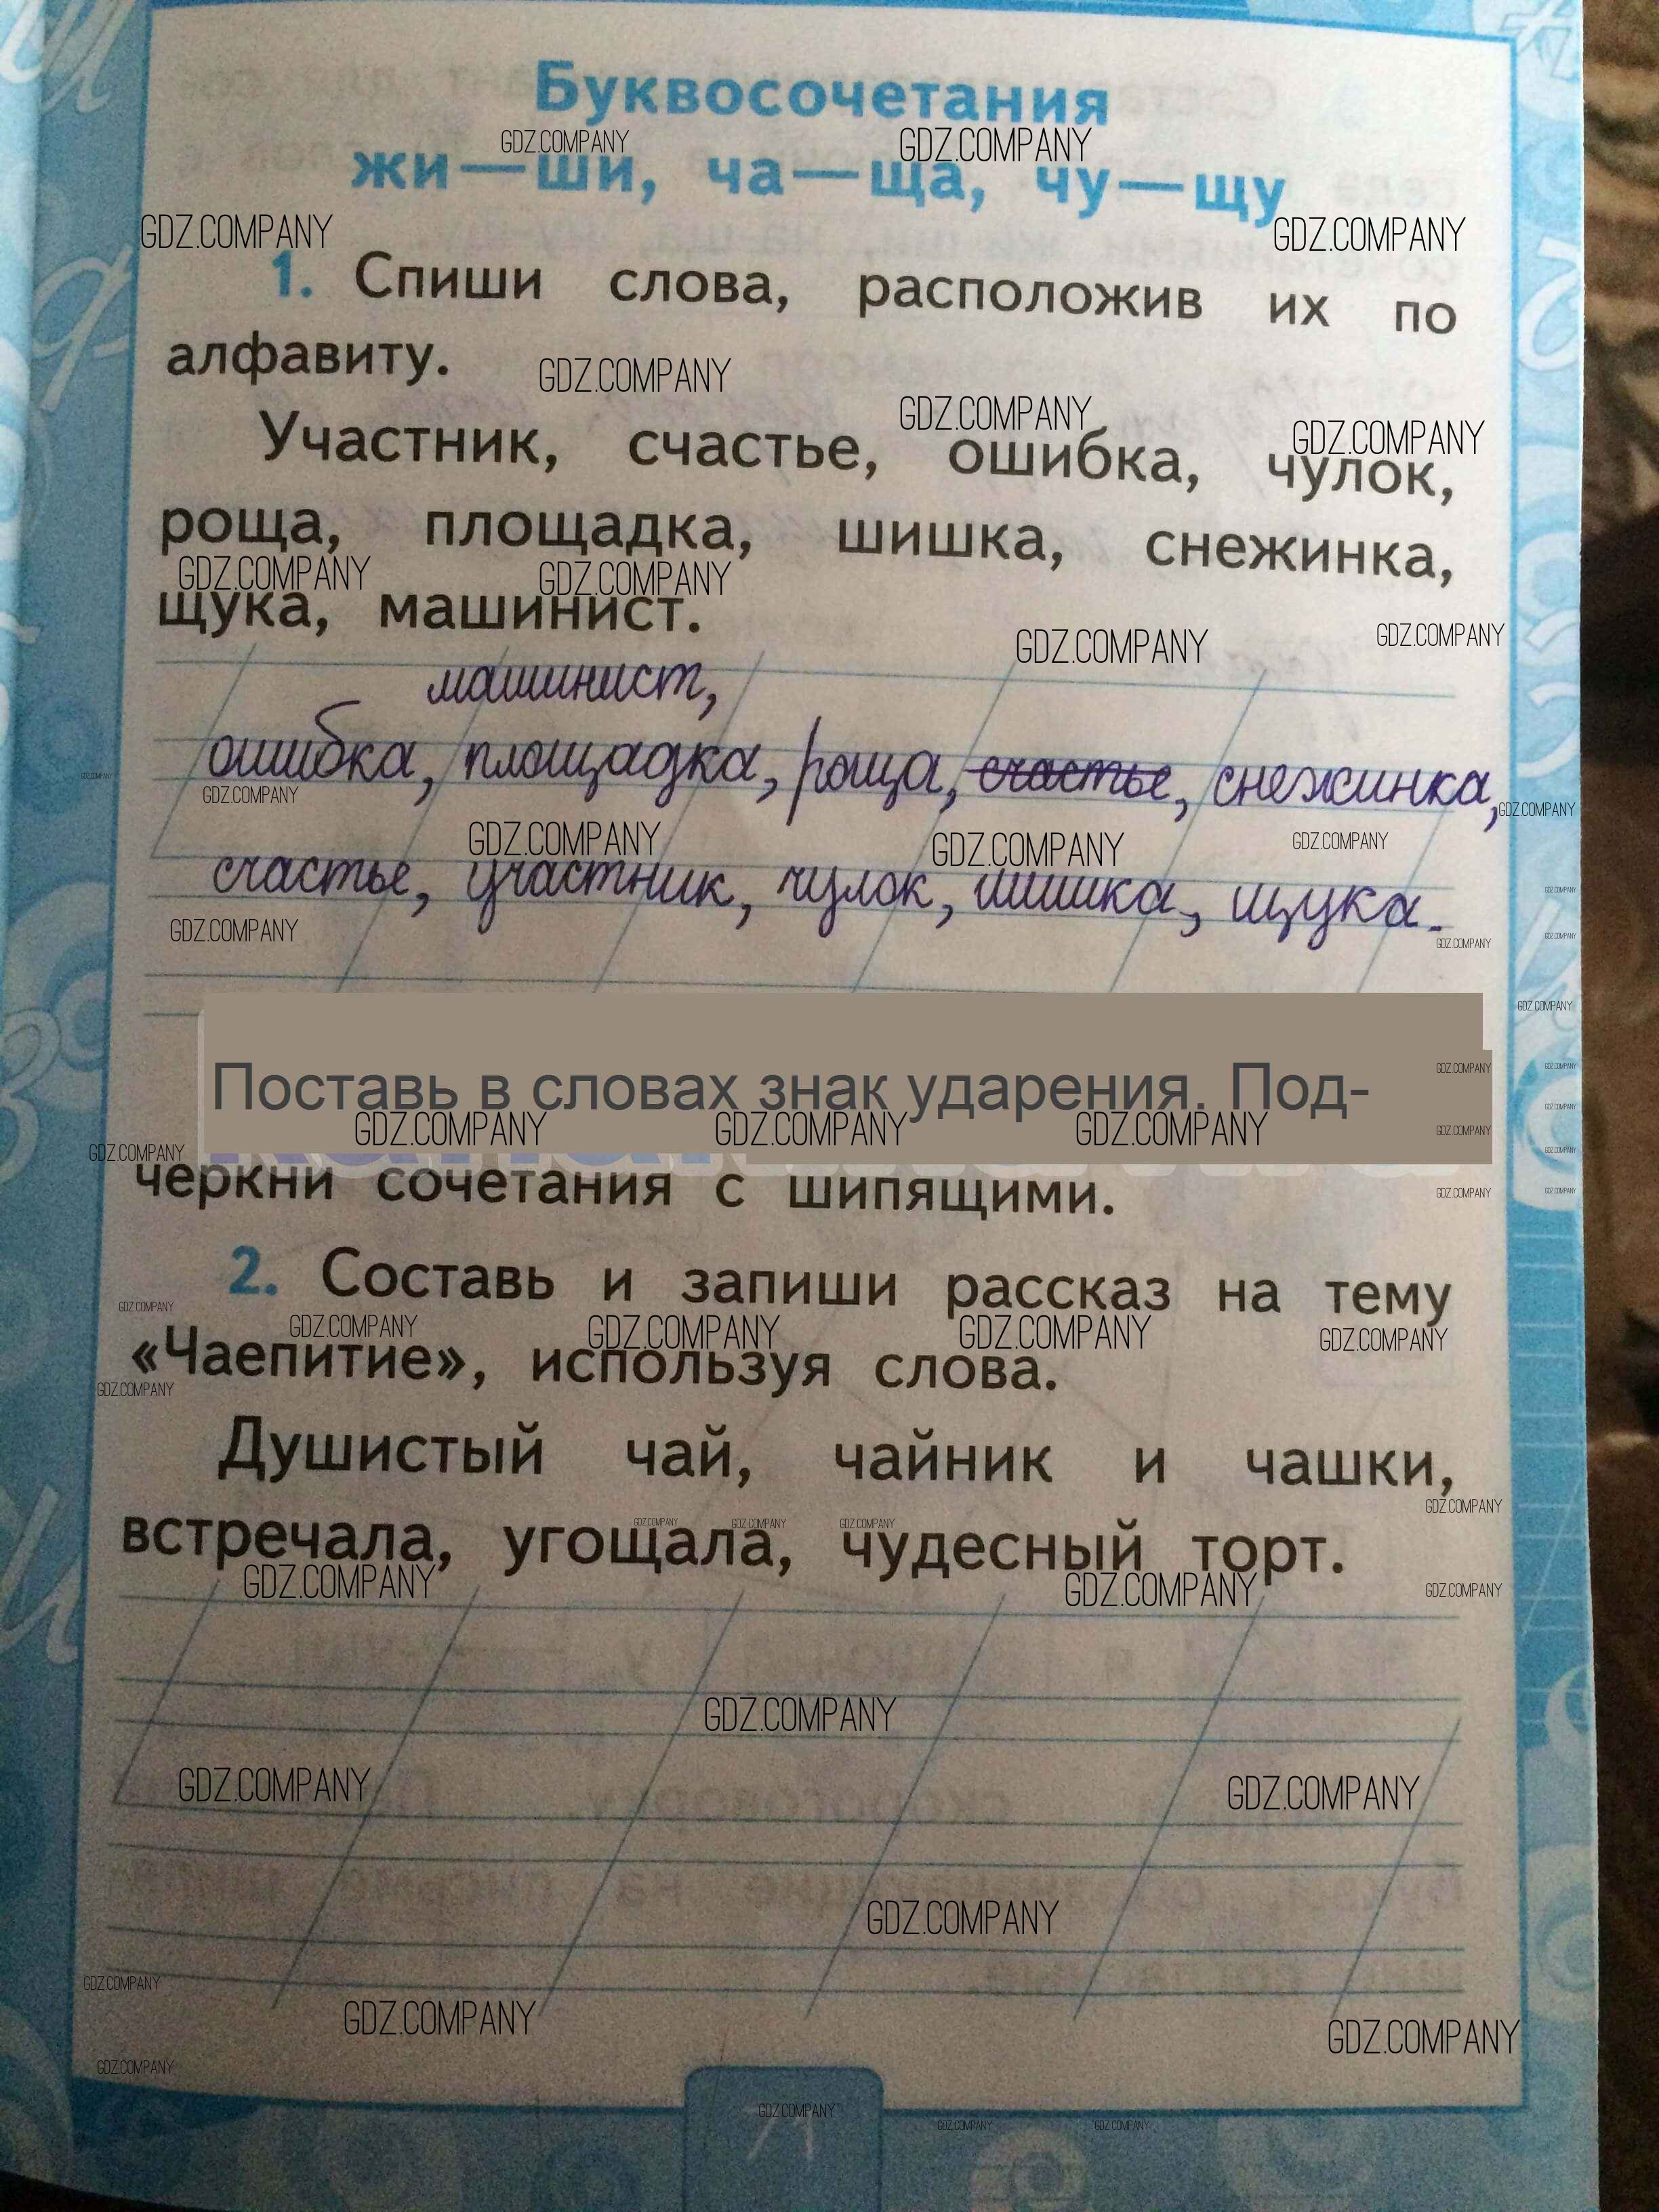 Буквосочетания
жи—ши, ча—ща, чу—щу
1. Спиши слова, расположив их по
алфавиту.
Участник, счастье, ошибка, чулок,
роща, площадка, шишка, снежинка,
щука, машинист.
машинист,
ошибка, площадка, роща, счастье, снежинка,
счастье, участник, чулок, шишка, щука.
Поставь в словах знак ударения. Под-
черкни сочетания с шипящими.
2. Составь и запиши рассказ на тему
«Чаепитие», используя слова.
Душистый чай, чайник и чашки,
встречала, угощала, чудесный торт.
GDZ.COMPANY